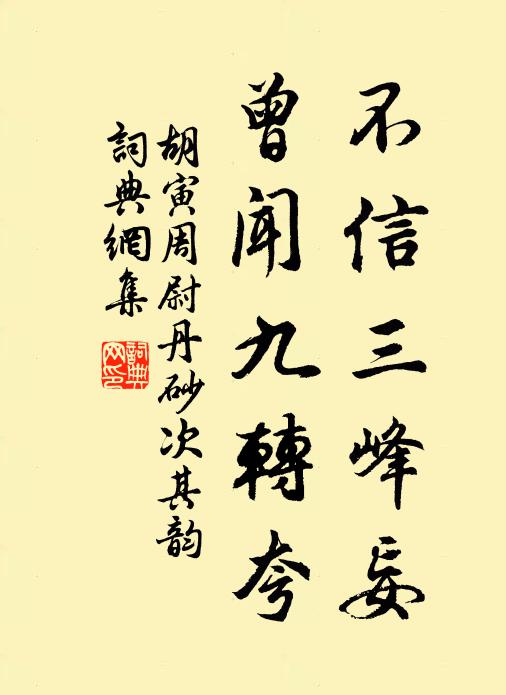 不信三峰妄
曾闻九轉夸
胡寅周尉丹砂次其韵
詞典網集
詞典网印